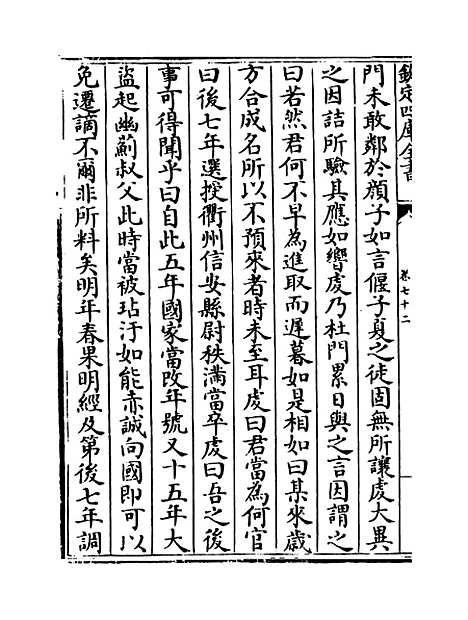 欽定四庫全書
卷七十二
門未敢鄰於顔子如言偃子夏之徒固無所讓虔大異
之因詰所驗其應如響虔乃杜門累日與之言因謂之
曰若然君何不早為進取而遲暮如是相如曰某來歲
方合成名所以不預來者時未至耳虔曰君當為何官
曰後七年選授衢州信安縣尉秩滿當卒虔曰吾之後
事可得聞乎曰自此五年國家當改年號又十五年大
盜起幽薊叔父此時當被玷汙如能赤誠向國即可以
免遷謫不爾非所料矣明年春果明經及第後七年調